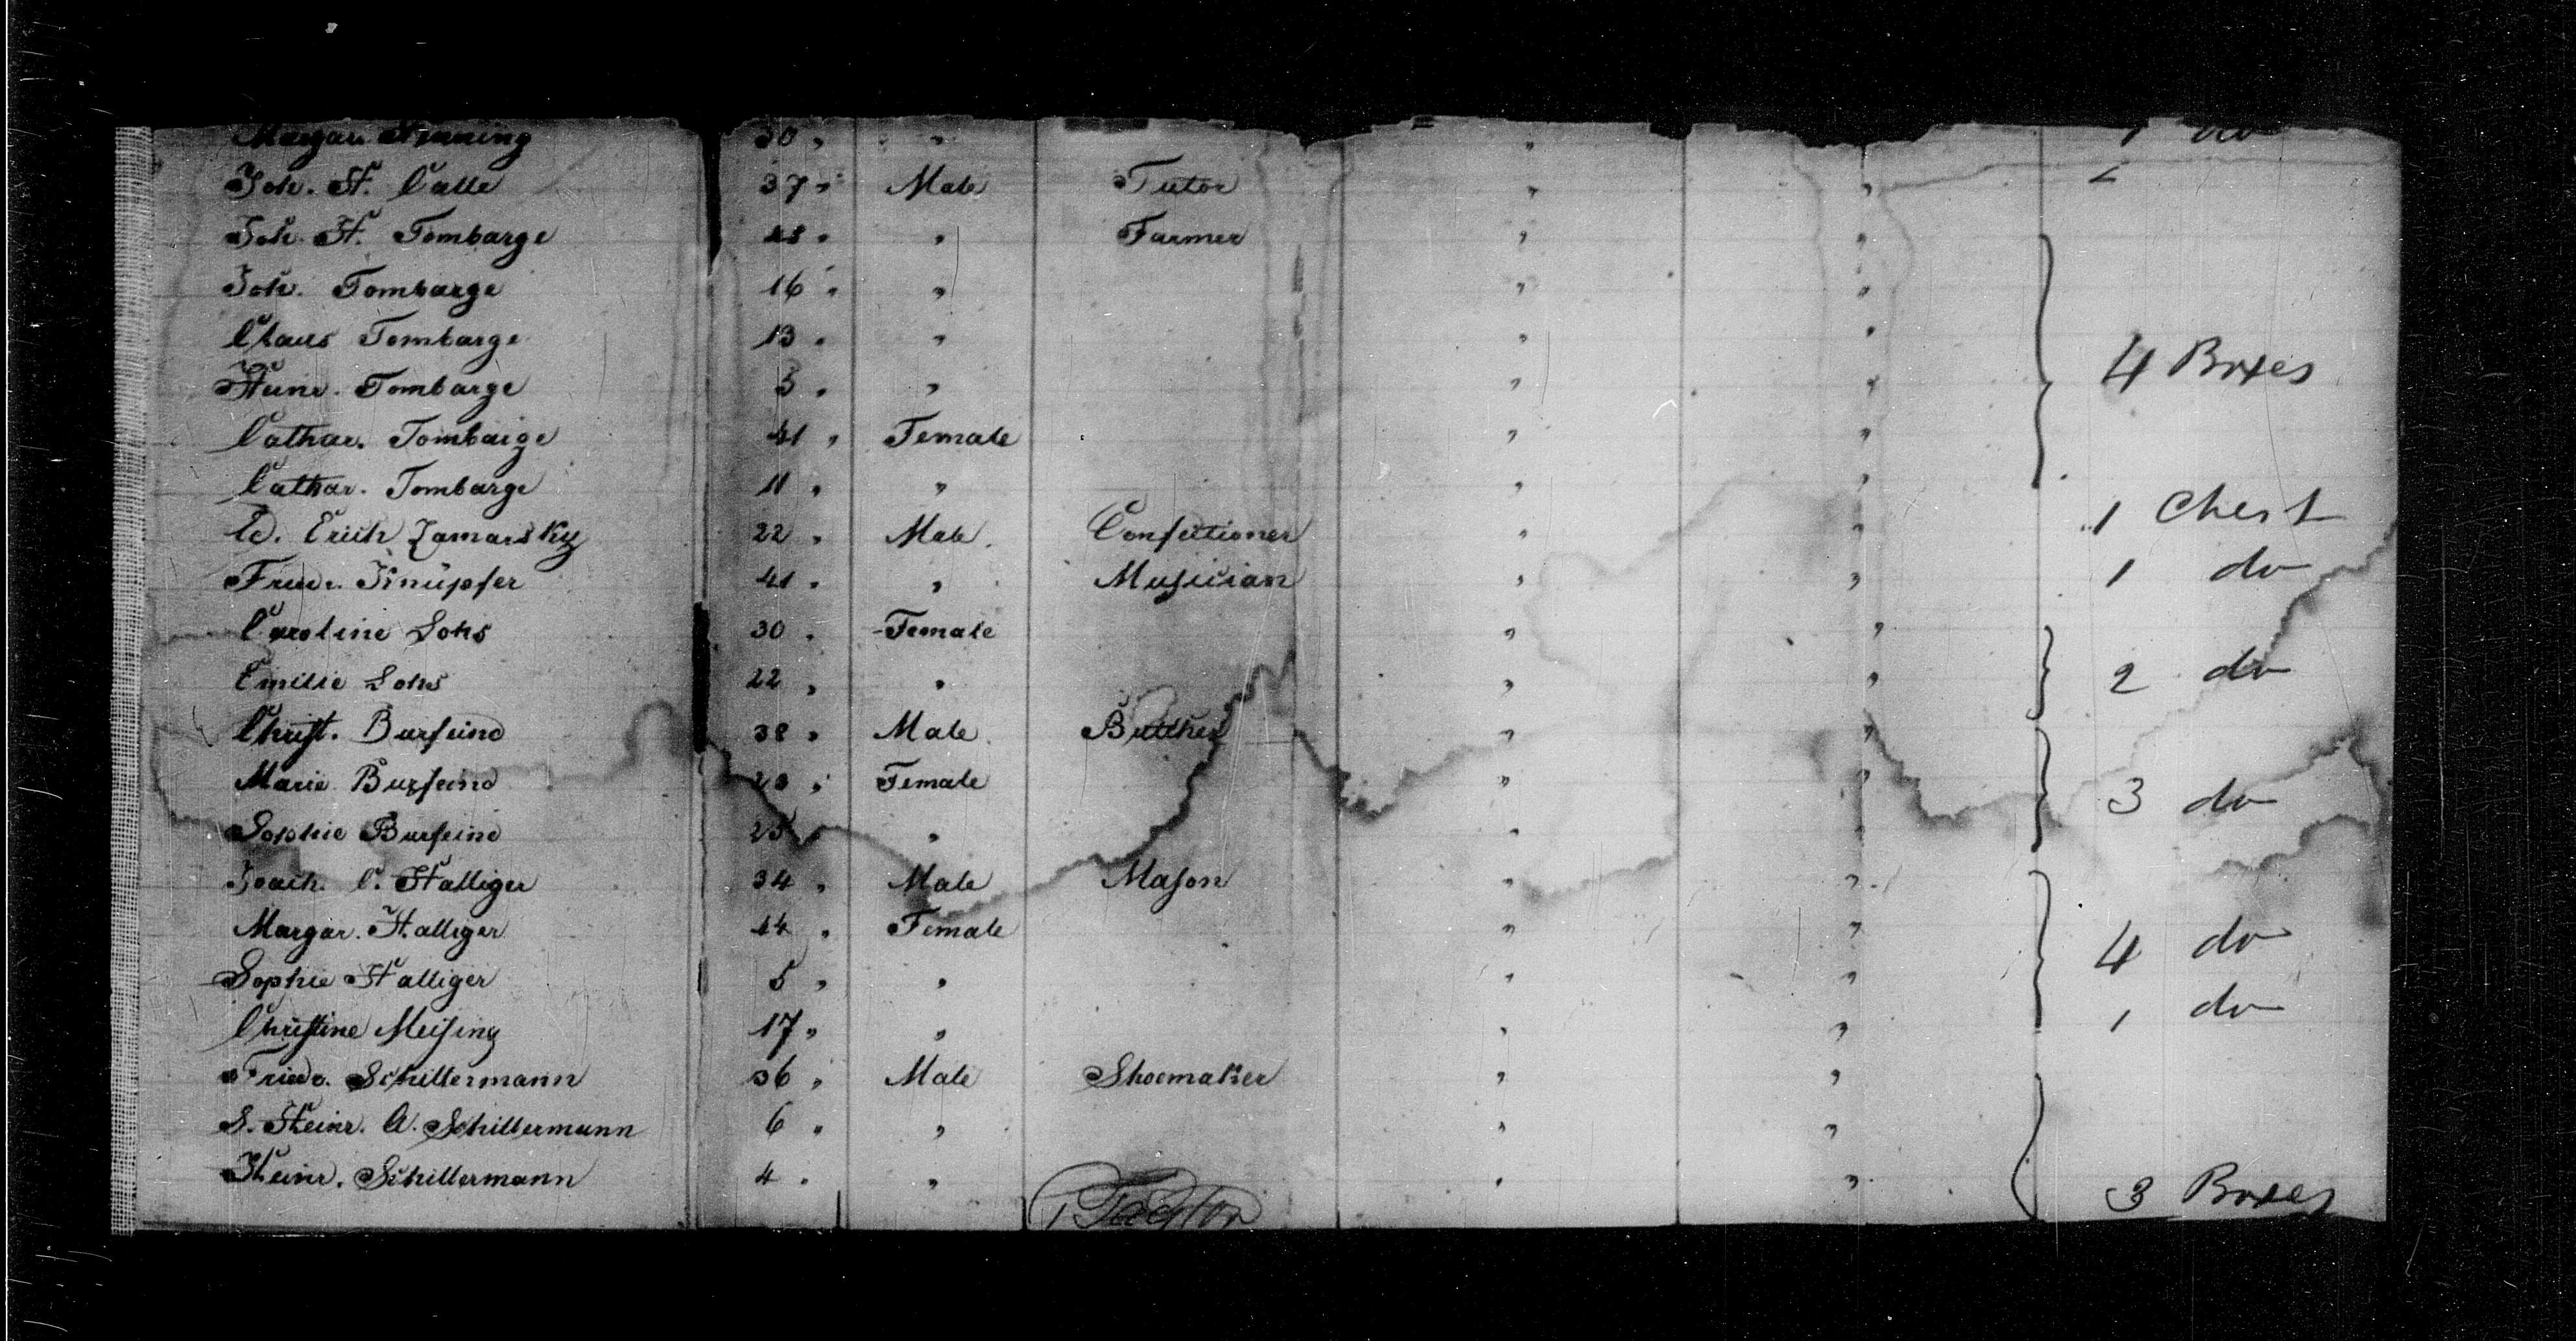 Margar. Henning 30 " " " 1 do
Joh. H. Calle 37 " Male Tutor " "
Joh. H. Tombarge 48 " " Farmer " "
Joh. Tombarge 16 " " " "
Claus Tombarge 13 " " " "
Heinr. Tombarge 5 " " " " 4 Boxes
Cathar. Tombarge 41 " Female " "
Cathar. Tombarge 11 " " " "
Ed. Erich Zamarsky 22 " Male Confectioner " " 1 Chest
Friedr. Knüpfer 41 " " Musician " " 1 do
Caroline Lohs 30 " Female " "
Emilie Lohs 22 " " " " 2 do
Christ. Burfeind 38 " Male Butcher " "
Marie Burfeind 23 " Female " " 3 do
Sophie Burfeind 25 " " "
Joach. C. Halliger 34 " Male Mason " "
Margar. Halliger 44 " Female " " 4 do
Sophie Halliger 5 " " " "
Christine Meising 17 " " " " 1 do
Friedr. Schillermann 36 " Male Shoemaker " "
S. Heinr. A. Schillermann 6 " " " "
Heinr. Schillermann 4 " " " " 3 Boxes